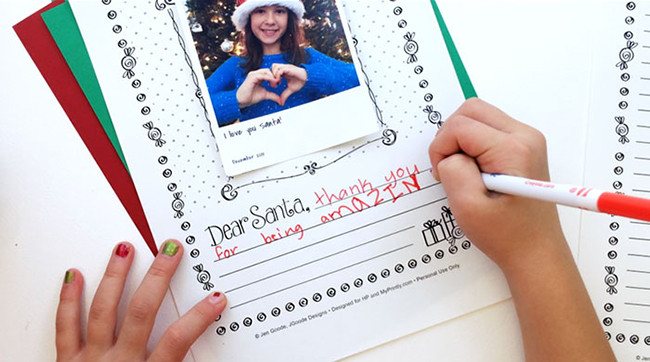 I love you santa!
December 2011
Dear Santa, thank you
for being amAZIN
© Jen Goode, JGoode Designs • Designed for HP and MyPrintly.com • Personal Use Only.
© Je